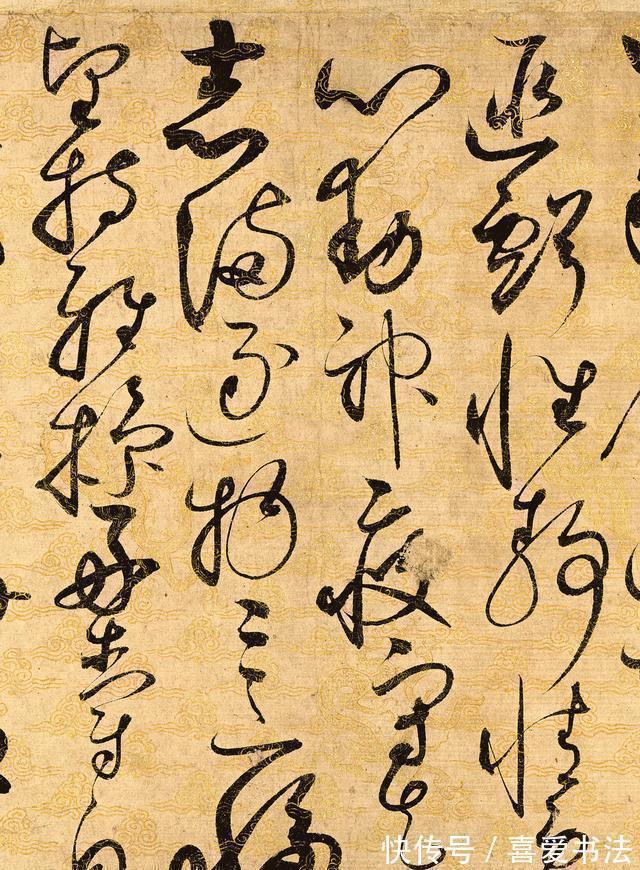 匪虧性静情逸
心動神疲守真
志滿逐物意移
堅持雅操好爵自
快传号 / 喜爱书法